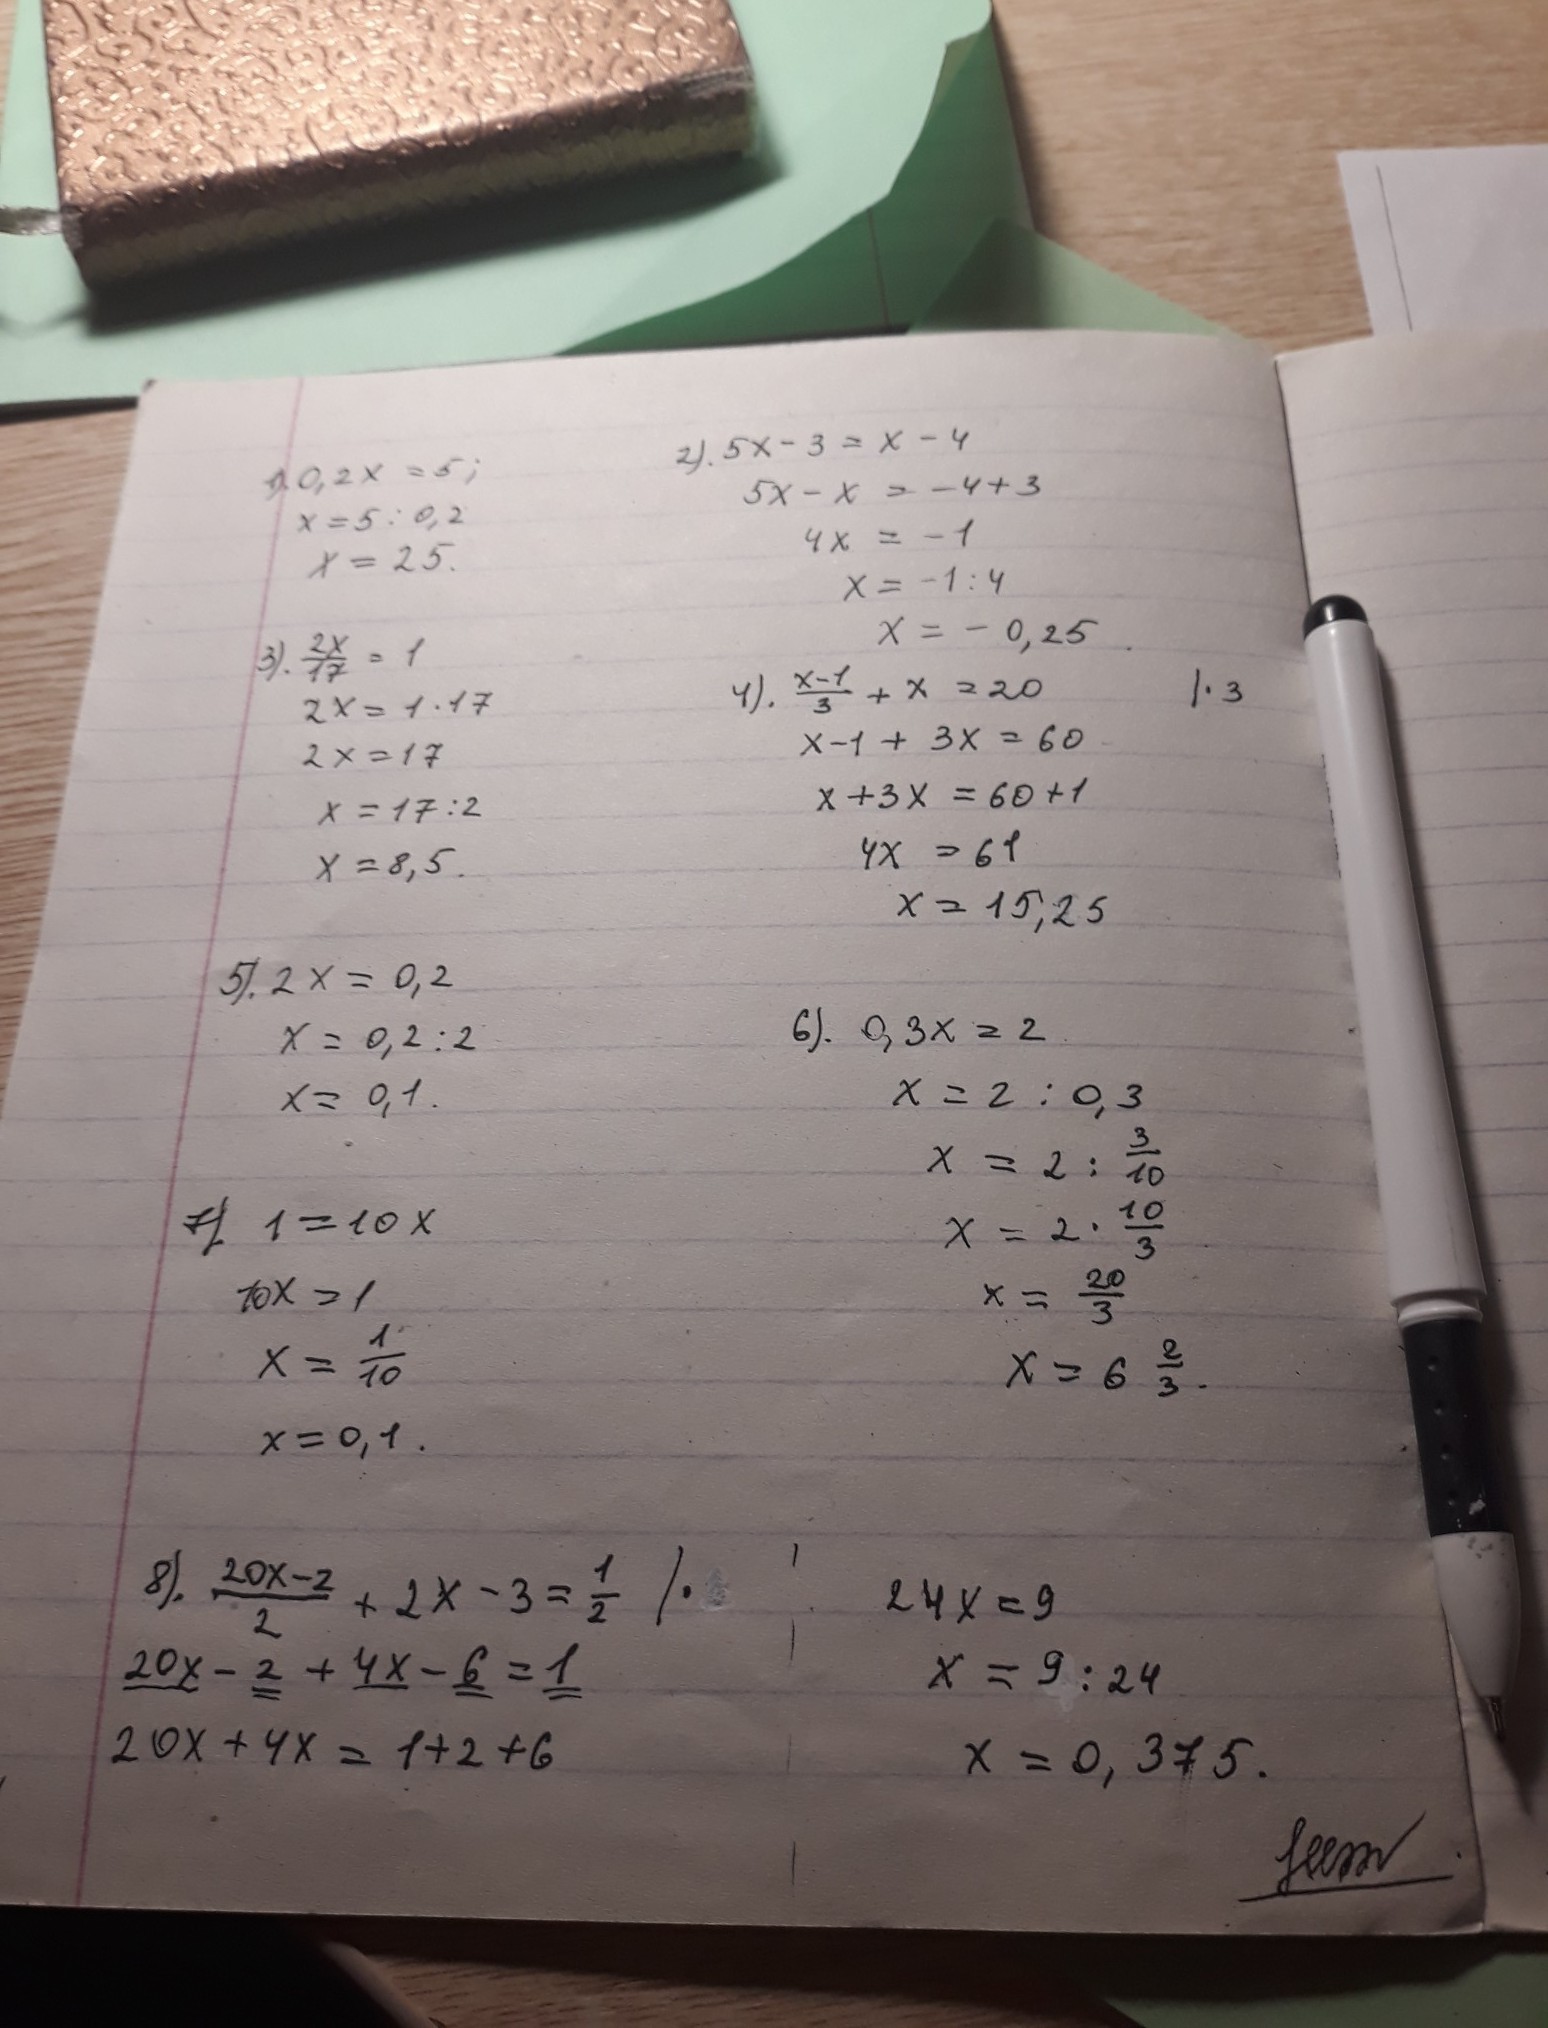 1). 0,2x = 5;
x = 5 : 0,2
x = 25.
2). 5x - 3 = x - 4
5x - x = -4 + 3
4x = -1
x = -1 : 4
x = -0,25.
3). 2x/17 = 1
2x = 1 · 17
2x = 17
x = 17 : 2
x = 8,5.
4). x-1/3 + x = 20 |· 3
x - 1 + 3x = 60
x + 3x = 60 + 1
4x = 61
x = 15,25
5). 2x = 0,2
x = 0,2 : 2
x = 0,1.
6). 0,3x = 2
x = 2 : 0,3
x = 2 : 3/10
x = 2 · 10/3
x = 20/3
x = 6 2/3.
7) 1 = 10x
10x = 1
x = 1/10
x = 0,1.
8). 20x-2/2 + 2x - 3 = 1/2 /·
20x - 2 + 4x - 6 = 1
20x + 4x = 1 + 2 + 6
24x = 9
x = 9 : 24
x = 0,375.